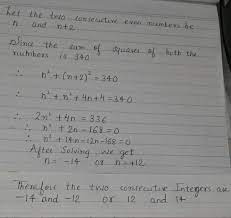 Let the two consecutive even numbers be
n and n+2
Since the sum of squares of both the
numbers is 340
∴ n² + (n+2)² = 340
∴ n² + n² + 4n + 4 = 340
∴ 2n² + 4n = 336
∴ n² + 2n - 168 = 0
∴ n² + 14n - 12n - 168 = 0
After Solving we get
n = -14 or n = +12
Therefore the two consecutive Integers are
-14 and -12 or 12 and 14